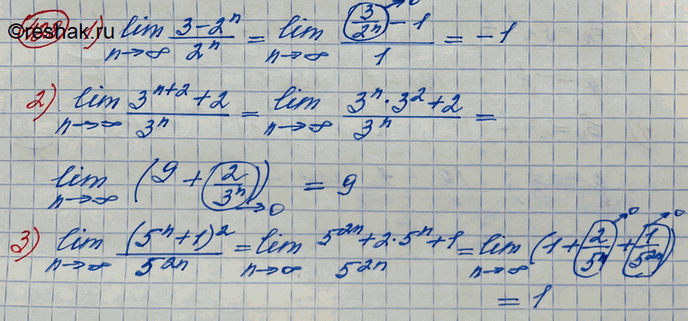 ©reshak.ru
1) lim n→∞ (3-2^n)/2^n = lim n→∞ (3/2^n - 1)/1 = -1
2) lim n→∞ (3^(n+2)+2)/3^n = lim n→∞ (3^n·3^2+2)/3^n =
lim n→∞ (9 + 2/3^n) = 9
→0
3) lim n→∞ (5^n+1)^2/5^(2n) = lim n→∞ (5^(2n)+2·5^n+1)/5^(2n) = lim n→∞ (1+2/5^n+1/5^(2n))
= 1